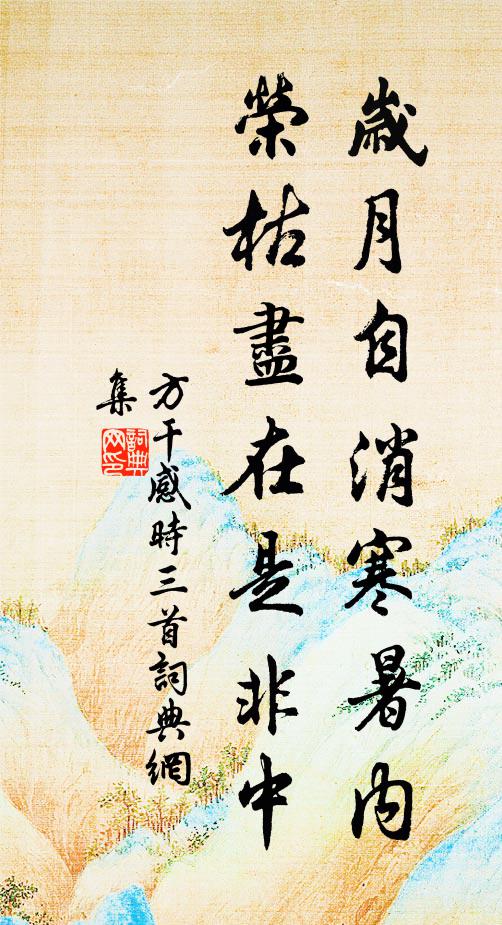 歲月自消寒暑內
榮枯盡在是非中
方干感時三首詞典網
集
詞典
網印